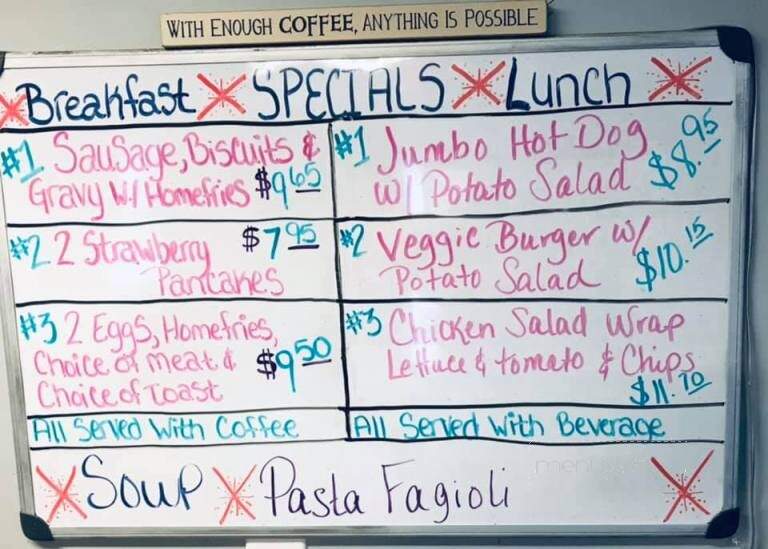 WITH ENOUGH COFFEE, ANYTHING IS POSSIBLE
Breakfast SPECIALS Lunch
#1 Sausage, Biscuits &
Gravy W/ Homefries $9.65
#2 2 Strawberry $7.95
Pancakes
#3 2 Eggs, Homefries,
Choice of meat &
Choice of Toast $9.50
All Served With Coffee
#1 Jumbo Hot Dog
w/ Potato Salad $8.95
#2 Veggie Burger w/
Potato Salad $10.15
#3 Chicken Salad Wrap
Lettuce & tomato & Chips
$11.70
All Served With Beverage
Soup Pasta Fagioli